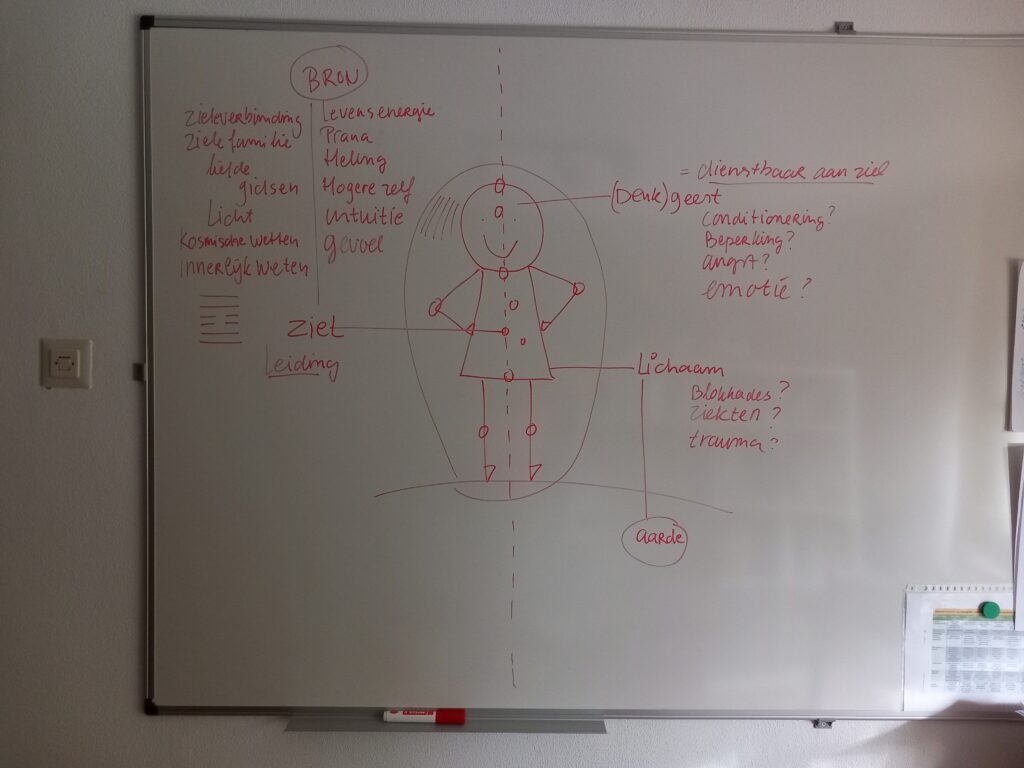 BRON
zieleverbinding
Ziele familie
liefde
gidsen
Licht
Kosmische wetten
innerlijk weten
Levensenergie
Prana
Heling
Hogere zelf
intuitie
gevoel
ziel
Leiding
= dienstbaar aan ziel
(Denk)geest
Conditionering?
Beperking?
angst?
emotie?
Lichaam
Blokkades?
ziekten?
trauma?
aarde